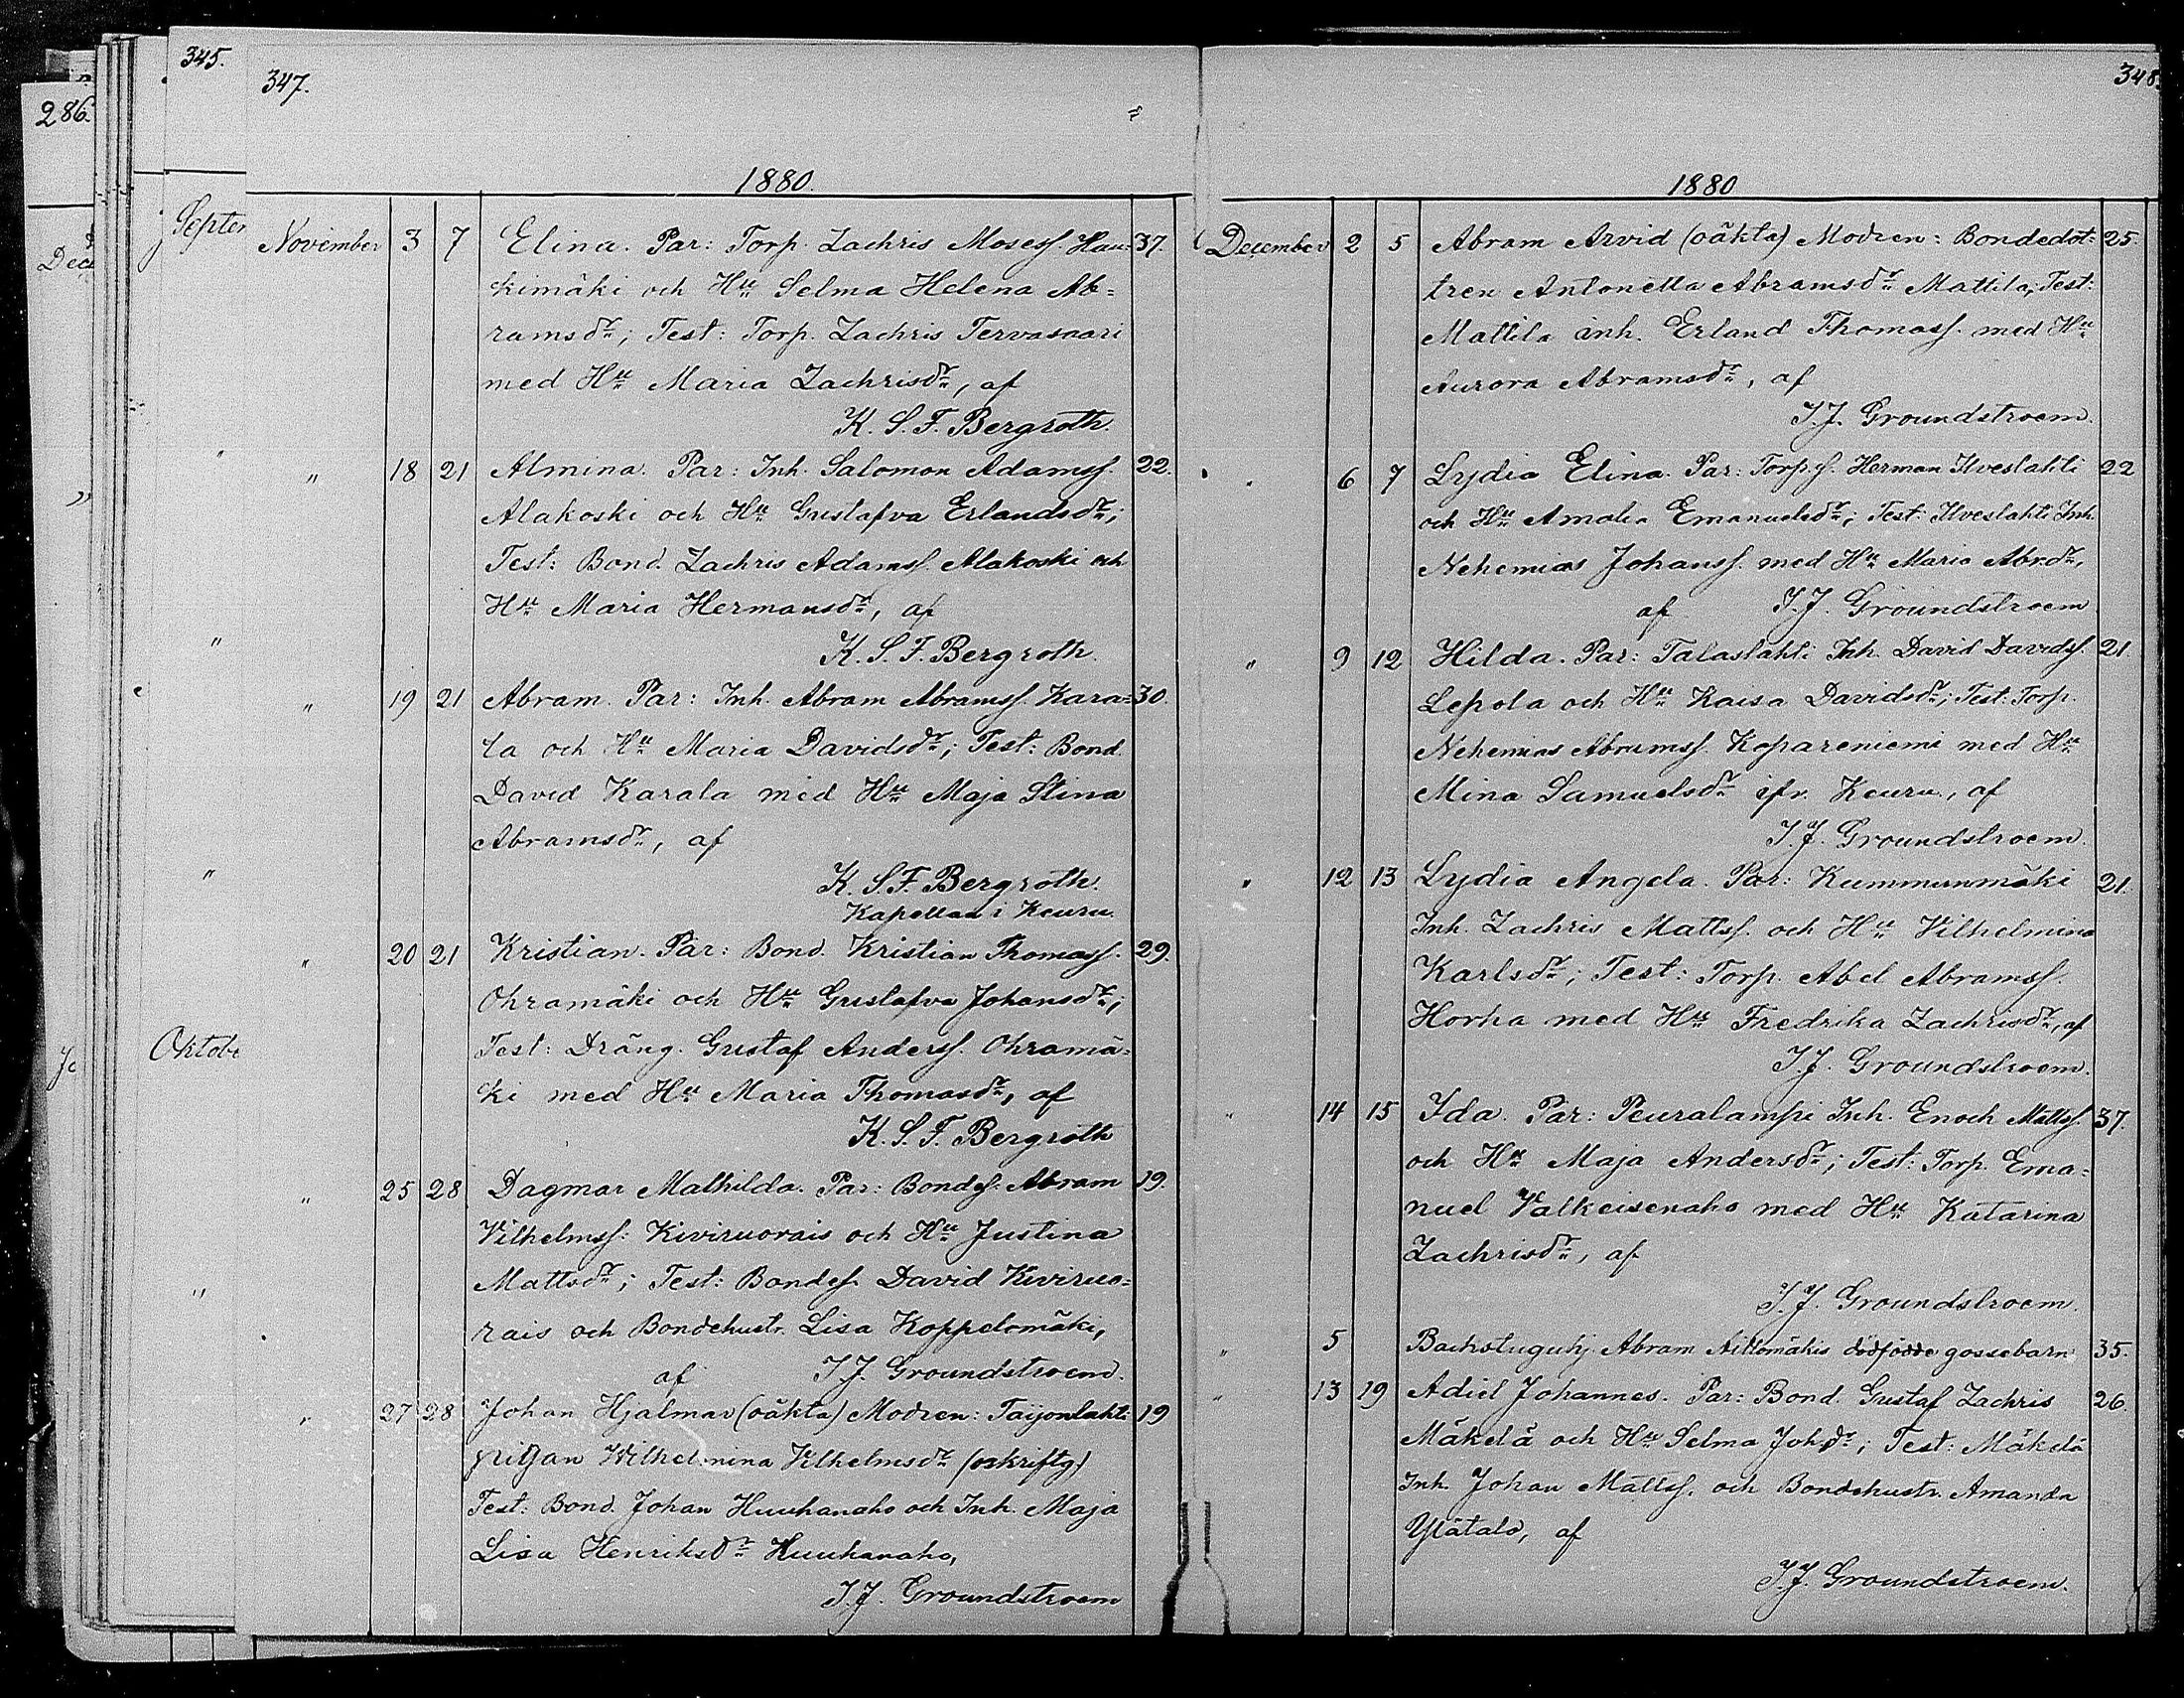 345.
347.
286.
1880.
Septem
Dec
November 3 7 Elina. Par: Torp. Zachris Mosess. Hau= 37.
kimäki och Hu Selma Helena Ab=
ramsdr; Test: Torp. Zachris Tervasaari
med Hu Maria Zachrisdr, af
K. S. F. Bergroth.
" 18 21 Almina. Par: Inh. Salomon Adamss. 22.
Alakoski och Hu Gustafva Erlandsdr;
Test: Bond. Zachris Adamss. Alakoski och
Hu Maria Hermansdr, af
K. S. F. Bergroth.
" 19 21 Abram. Par: Inh. Abram Abramss. Kara= 30.
la och Hu Maria Davidsdr; Test: Bond.
David Karala med Hu Maja Stina
Abramsdr, af
K. S. F. Bergroth.
Kapellan i Keuru.
" 20 21 Kristian. Par: Bond. Kristian Thomass. 29.
Ohramäki och Hu Gustafva Johansdr;
Oktobe
Test: Dräng. Gustaf Anderss. Ohramä=
ki med Hu Maria Thomasdr, af
K. S. F. Bergroth
" 25 28 Dagmar Mathilda. Par: Bondes. Abram 19.
Vilhelmss: Kiviruorais och Hu Justina
Mattsdr; Test: Bondes. David Kiviruo=
rais och Bondehustr. Lisa Koppelomäki,
af I. J. Groundstroem.
" 27 28 Johan Hjalmar (oäkta) Modren: Taijonlahti 19
pigan Wilhelmina Vilhelmsdr (oskriftg)
Test: Bond. Johan Huuhanaho och Inh. Maja
Lisa Henriksdr Huuhanaho,
I. J. Groundstroem
348.
1880
December 2 5 Abram Arvid (oäkta) Modren: Bondedot= 25.
tren Antonetta Abramsdr Mattila, Test:
Mattila inh. Erland Thomass. med Hu
Aurora Abramsdr, af
I. J. Groundstroem.
" 6 7 Lydia Elina. Par: Torp.s. Herman Ilveslahti 22
och Hu Amalia Emanuelsdr; Test: Ilveslahti Inh.
Nehemias Johanss. med Hu Maria Abr.dr,
af I. J. Groundstroem
" 9 12 Hilda. Par: Talaslahti Inh. David Davidss. 21
Lepola och Hu Kaisa Davidsdr; Test: Torp.
Nehemias Abramss. Kopareniemi med Hu
Mina Samuelsdr ifr. Keuru, af
I. J. Groundstroem.
" 12 13 Lydia Angela. Par: Kummunmäki 21.
Inh. Zachris Mattss. och Hu Vilhelmina
Karlsdr; Test: Torp. Abel Abramss.
Horha med Hu Fredrika Zachrisdr, af
I. J. Groundstroem.
" 14 15 Ida. Par: Peuralampi Inh. Enoch Mattss. 37.
och Hu Maja Andersdr; Test: Torp. Ema=
nuel Valkeisenaho med Hu Katarina
Zachrisdr, af
I. J. Groundstroem.
" 5 Backstuguhj Abram Aittomäkis dödfödde gossebarn 35.
" 13 19 Adiel Johannes. Par: Bond. Gustaf Zachris 26.
Mäkelä och Hu Selma Joh.dr; Test: Mäkelä
Inh. Johan Mattss. och Bondehustr. Amanda
Ylätalo, af
I. J. Groundstroem.